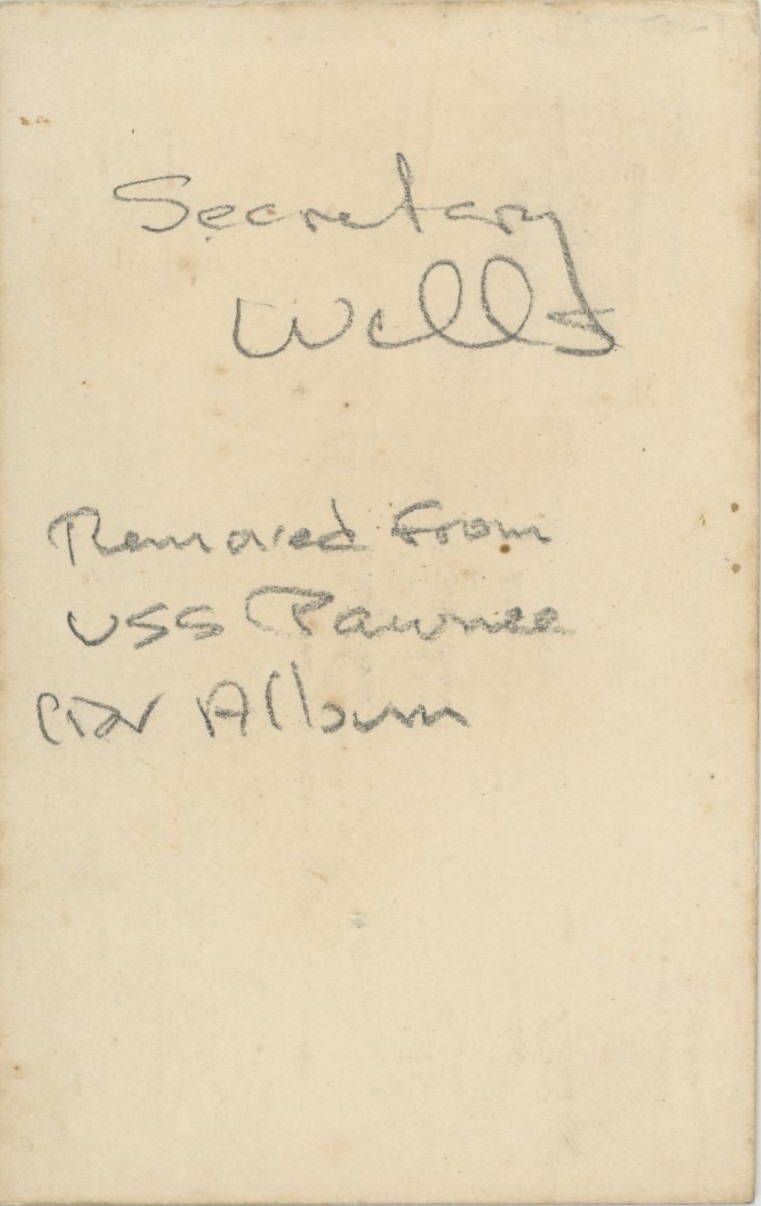 Secretary
Wells
Removed From
USS Pawnee
CDV Album